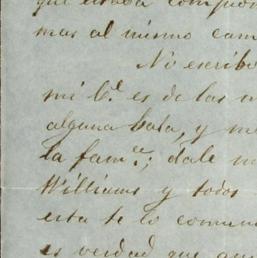 que estaba compron
mas al mismo cam
No escribo
mi Cª es de las m
alguna bala, y me
la famª; dale m
Williams y todos
esta te lo comun
es verdad que aqu